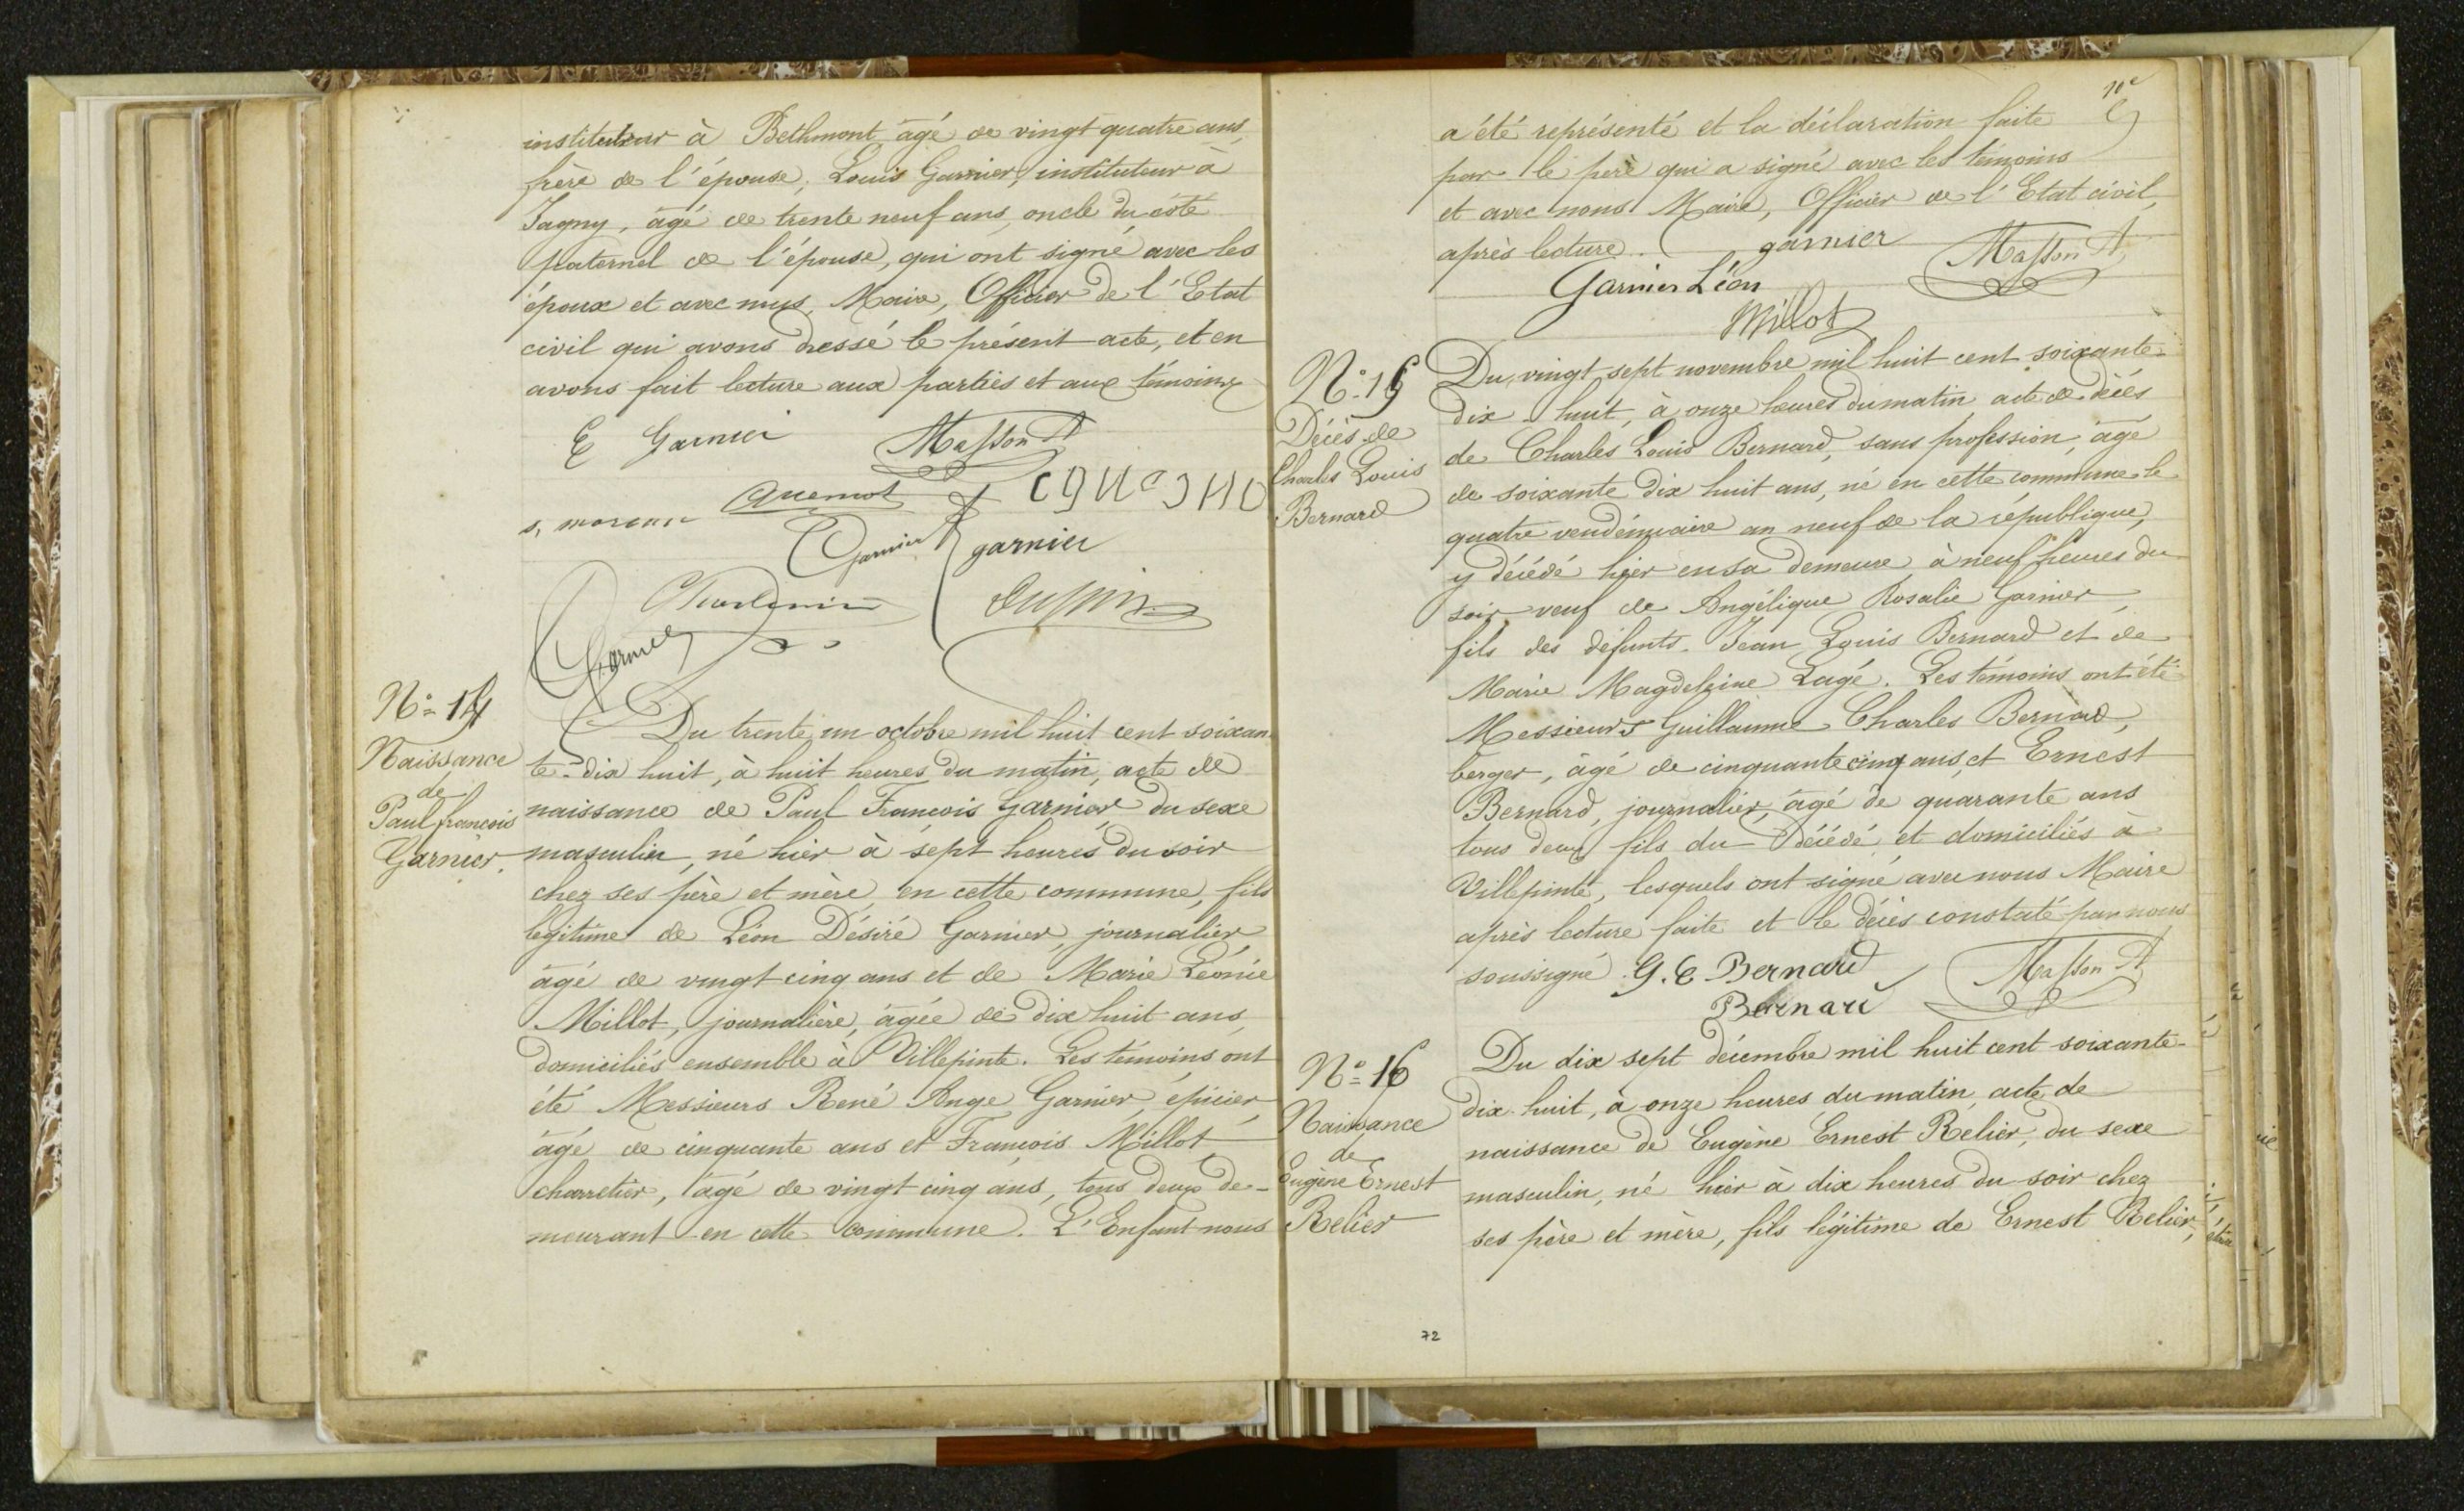 instituteur à Bethmont âgé de vingt quatre ans,
frère de l'épouse, Louis Garnier, instituteur à
Jagny, âgé de trente neuf ans, oncle du côté
paternel de l'épouse, qui ont signé avec les
époux et avec nous, Maire, Officier de l'Etat
civil qui avons dressé le présent acte, et en
avons fait lecture aux parties et aux témoins
E Garnier Masson A
Quemot
s, moreau
Garnier garnier
Dupin
Garnier
N° 14
Naissance
de
Paul françois
Garnier.
Du trente un octobre mil huit cent soixan
te-dix huit, à huit heures du matin, acte de
naissance de Paul François Garnier du sexe
masculin, né hier à sept heures du soir
chez ses père et mère, en cette commune, fils
légitime de Léon Désiré Garnier, journalier,
âgé de vingt cinq ans et de Marie Léonie
Millot, journalière, âgée de dix huit ans,
domiciliés ensemble à Villepinte. Les témoins ont
été Messieurs René Ange Garnier, épicier,
âgé de cinquante ans et François Millot,
charretier, âgé de vingt cinq ans, tous deux de-
meurant en cette commune. L'Enfant nous
10e
a été représenté et la déclaration faite
par le père qui a signé avec les témoins
et avec nous Maire, Officier de l'Etat civil,
après lecture. garnier Masson A
Garnier Léon
Millot
N° 15
Décès de
Charles Louis
Bernard
Du vingt sept novembre mil huit cent soixante-
dix huit, à onze heures du matin acte de décès
de Charles Louis Bernard, sans profession, âgé
de soixante dix huit ans, né en cette commune le
quatre vendémiaire an neuf de la république,
y décédé hier en sa demeure à neuf heures du
soir, veuf de Angélique Rosalie Garnier,
fils des défunts Jean Louis Bernard et de
Marie Magdeleine Lagé. Les témoins ont été
Messieurs Guillaume Charles Bernard,
berger, âgé de cinquante cinq ans, et Ernest
Bernard, journalier, âgé de quarante ans
tous deux fils du décédé et domiciliés à
Villepinte, lesquels ont signé avec nous Maire
après lecture faite et le décès constaté par nous
soussigné G. C. Bernard Masson A
Bernard
N° 16
Naissance
de
Eugène Ernest
Relier
Du dix sept décembre mil huit cent soixante-
dix huit, à onze heures du matin, acte de
naissance de Eugène Ernest Relier, du sexe
masculin, né hier à dix heures du soir chez
ses père et mère, fils légitime de Ernest Relier,
72